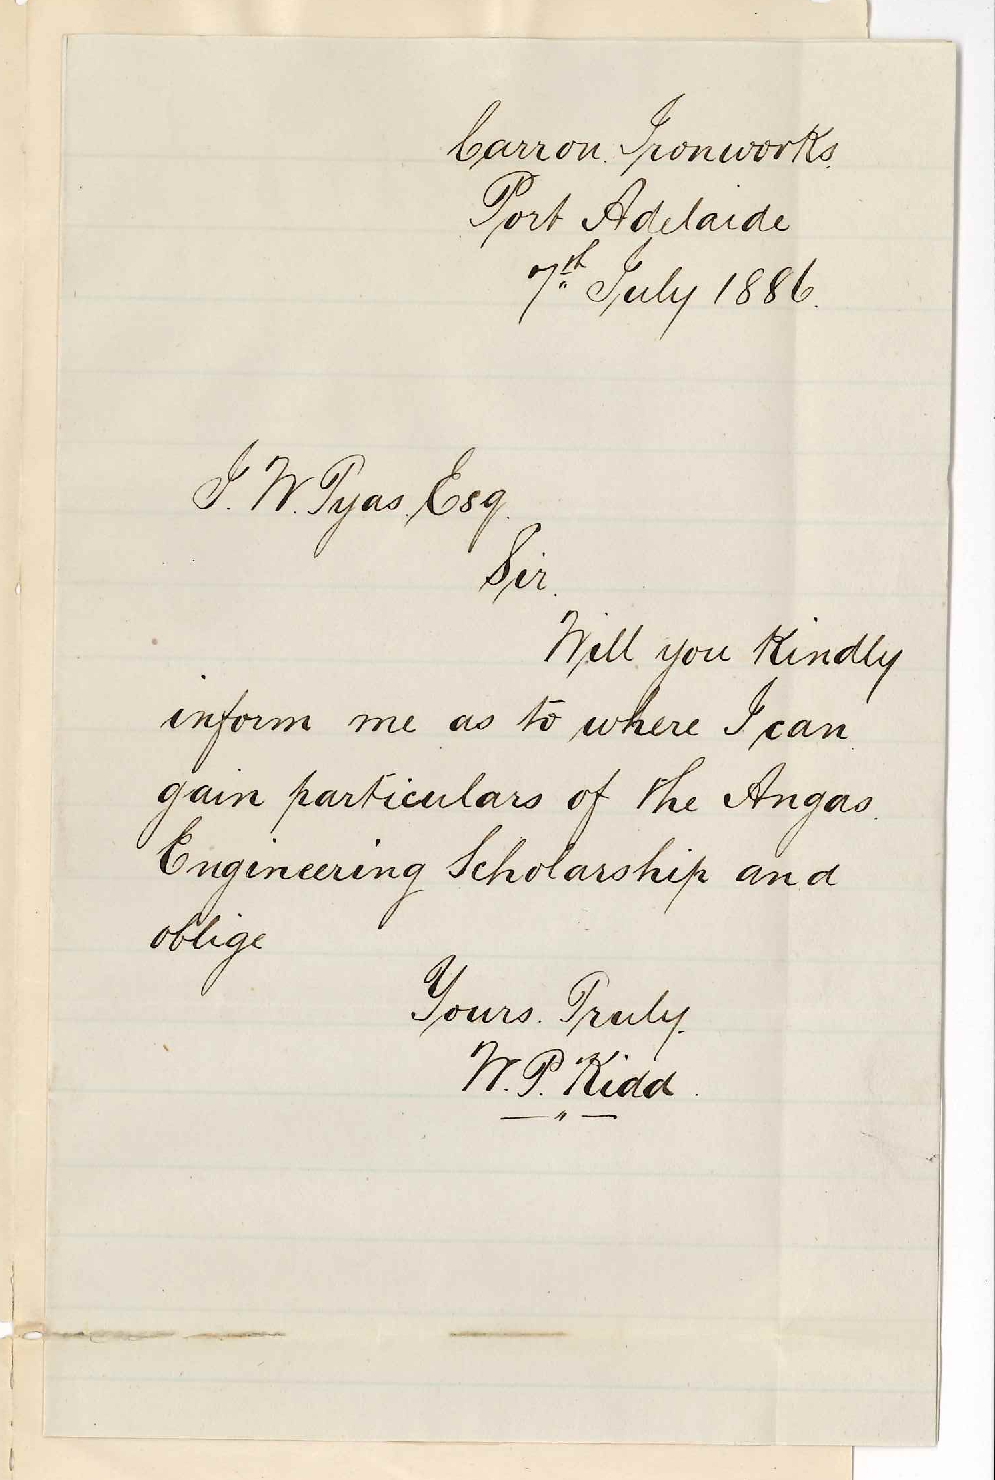 Carron. Ironworks.
Port Adelaide
7th July 1886.
J. W. Tyas. Esq.
Sir.
Will you kindly
inform me as to where I can
gain particulars of the Angas.
Engineering Scholarship and
oblige
Yours. Truly.
W. P. Kidd.